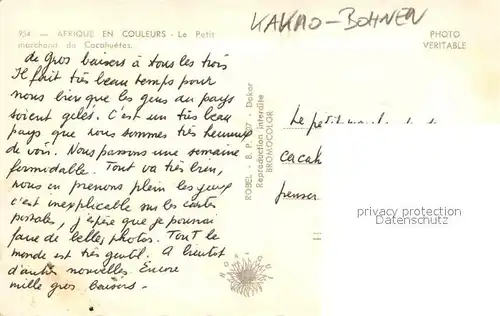 KAKAO-BOHNEN
954 — AFRIQUE EN COULEURS - Le Petit
marchand de Cacahuètes.
PHOTO
VERITABLE
de gros baisers à tous les trois
Il fait très beau temps pour
nous bien que les gens du pays
soient gelés. C'est un très beau
pays que nous sommes très heureux
de voir. Nous passons une semaine
formidable. Tout va très bien,
nous en prenons plein les yeux
c'est inexplicable sur les cartes
postales, j'espère que je pourrai
faire de belles photos. Tout le
monde est très gentil. A bientôt
d'autres nouvelles. Encore
mille gros baisers.
ROBEL - B. P. - Dakar
Reproduction interdite
BROMOCOLOR
Le petit
cacah
penser
privacy protection by
delcampe.com